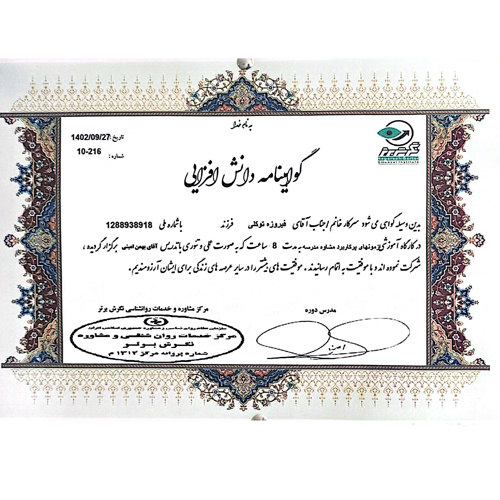 به نام خدا
تاریخ: 1402/09/27
شماره: 10-216
گواهینامه دانش افزایی
بدین وسیله گواهی می شود سرکار خانم / جناب آقای فیروزه توکلی فرزند باشماره ملی 1288938918
در کارگاه آموزشی موتهای پرکاربرد مشاوه مدرسه به مدت 8 ساعت که به صورت عملی و تئوری با تدریس آقای بهمن امینی برگزار گردیده ،
شرکت نموده اند و با موفقیت به اتمام رسانیدند . موفقیت های بیشتر را در سایر عرصه های زندگی برای ایشان آرزومندیم .
مدرس دوره
مرکز مشاوره و خدمات روانشناسی نگرش برتر
مرکز خدمات روان شناسی و مشاوره
نگرش برتر
شماره پروانه مرکز ۱۳۱۲ م